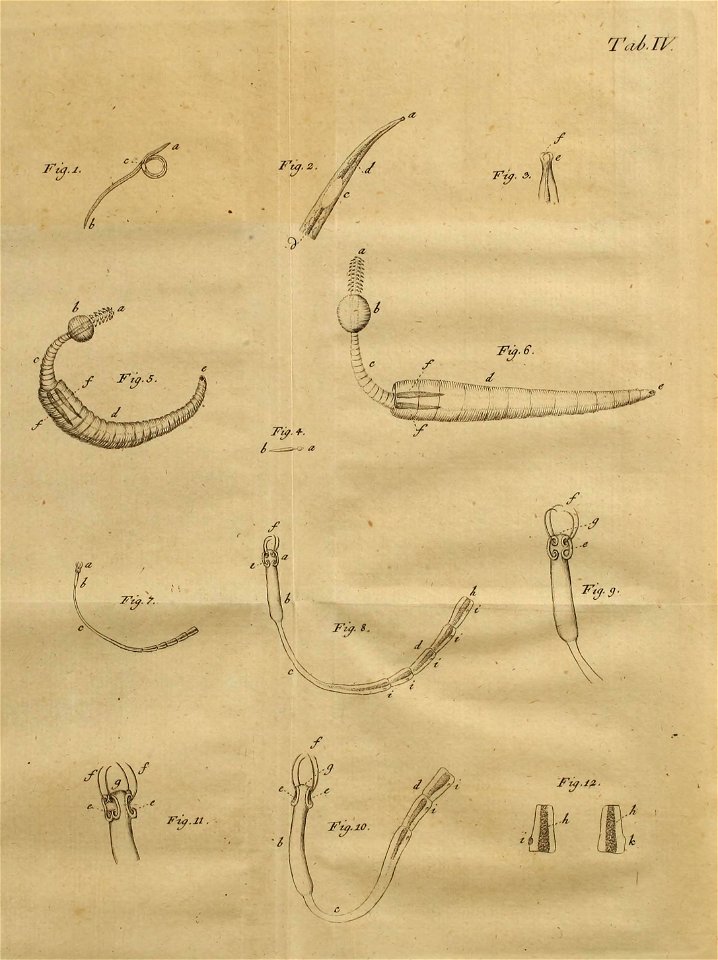 Tab. IV.
f
a
a
e
c
Fig. 1.
Fig. 2.
d
Fig. 3.
c
b
a
b
a
b
c
Fig. 5.
f
d
e
f
Fig. 6.
c
f
d
e
f
Fig. 4.
b
a
f
g
e
Fig. 9.
f
a
b
Fig. 7.
c
a
b
Fig. 8.
h
i
d
i
i
c
i
i
f
f
g
e
e
Fig. 11.
f
g
e
e
b
Fig. 10.
d
i
i
c
Fig. 12.
h
i
h
k